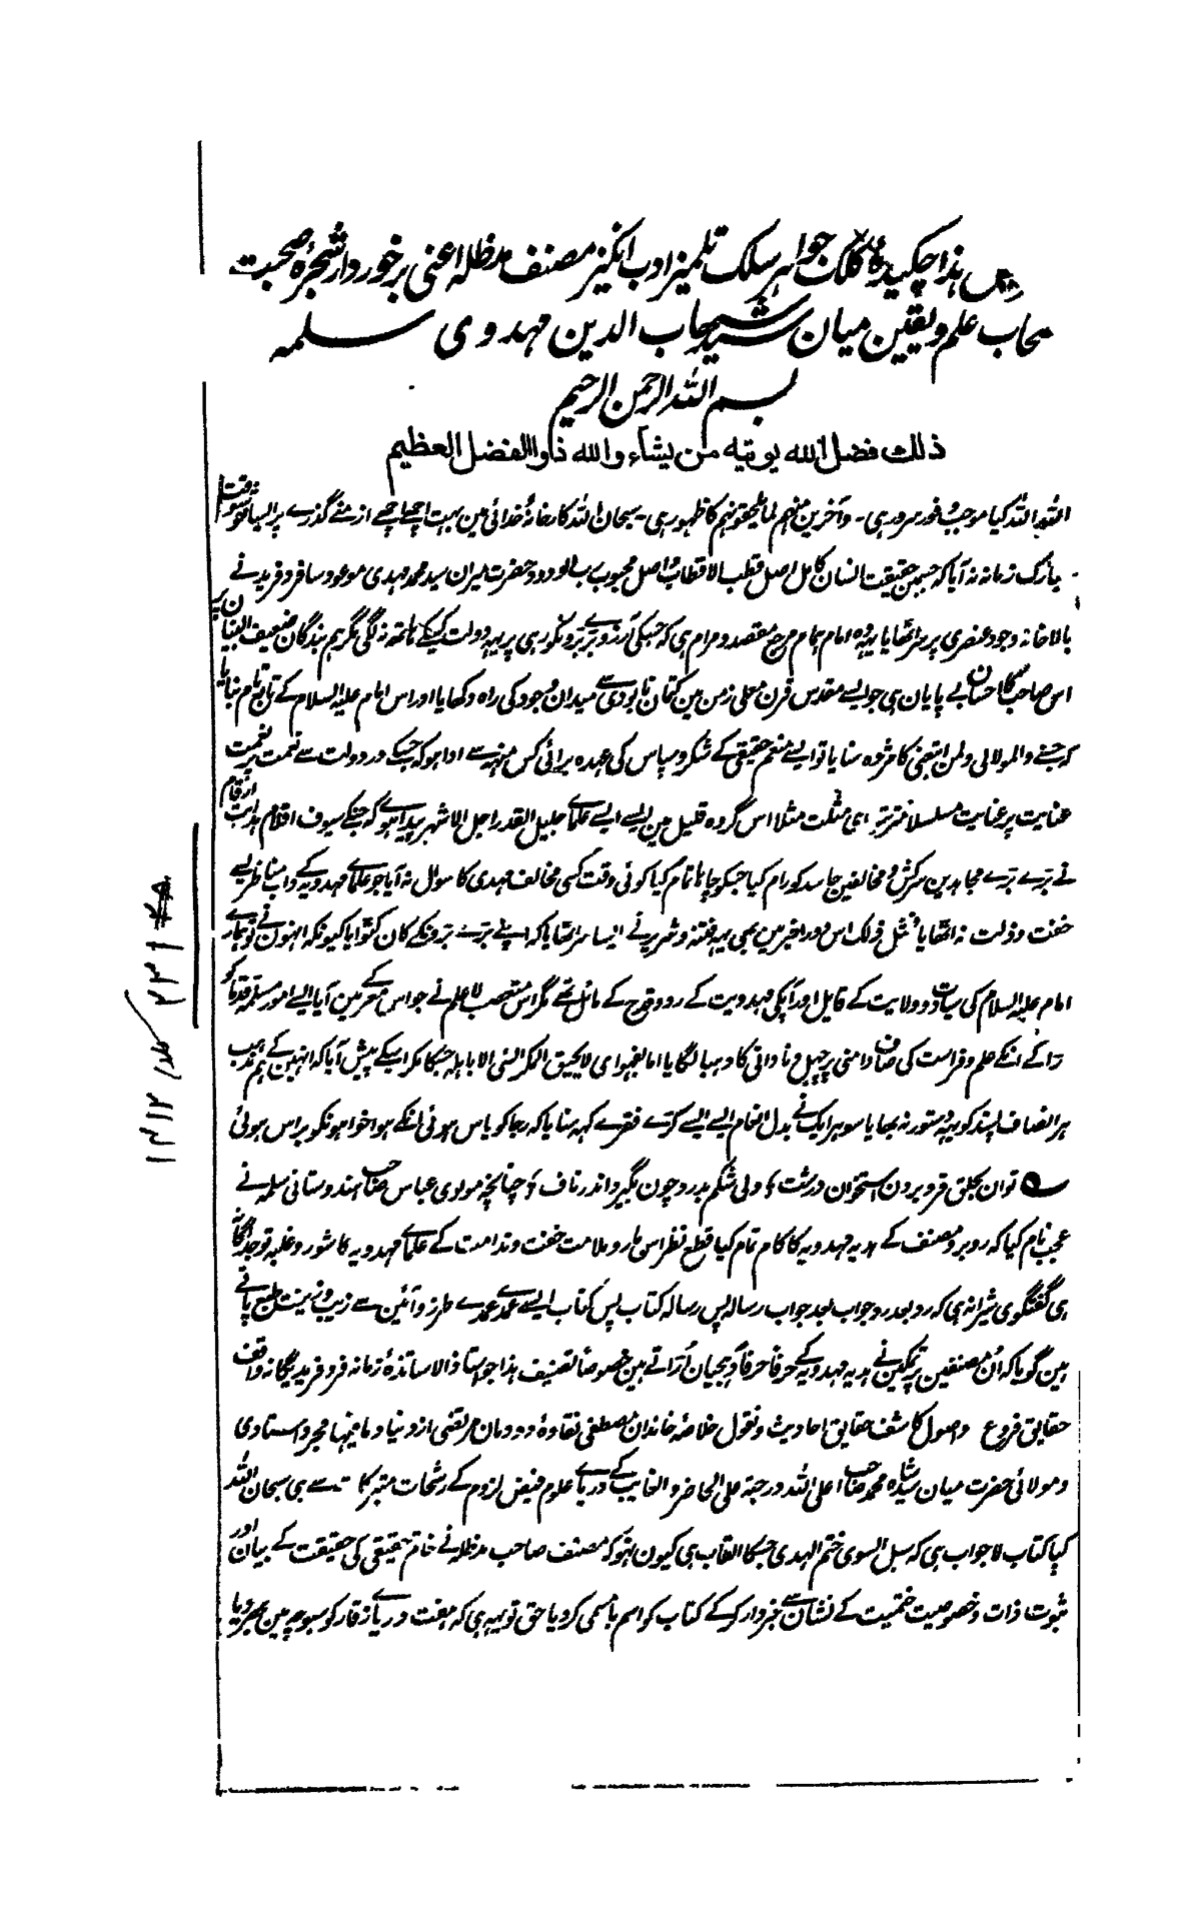 هذا چکیدهٔ کلک جواہر سلک تلمیذ ادب انگیز مصنف مدظلہ اعنی برخوردار شجرۂ صحبت
سحاب علم و یقین میان سید شہاب الدین مہدوی سلمہ
بسم اللہ الرحمن الرحیم
ذلك فضل الله يوتيه من يشاء والله ذو الفضل العظيم
اللہ اللہ کیا موجب فخر و سرور ہی ۔ وآخرین منہم لما یلحقوا بہم کا ظہور ہی ۔ سبحان اللہ کارخانۂ خدائی مین بہت اچھے اچھے ازمنے گذرے پر ایسا وقت
نازک زمانہ نہ آیا کہ جسمین حقیقت انسان کامل اصل قطب الاقطاب واصل محبوب رب الودود حضرت میران سید محمد مہدی موعود سا فرد فرید نے
بالاخانہ وجود عنصری پر سر اٹھایا یہ وہ امام ہمام مرجع مقصد و مرام ہی کہ جسکی آرزو بڑے بڑونکو رہی پر یہ دولت کسیکے ہاتہ نہ لگی مگر ہم بندگان ضعیف البنیان پر
اس صاحب کا احسان بے پایان ہی جو ایسے مقدس قرن معلی زمن مین کتمان نابودی سے میدان وجود کی راہ دکھایا اور اس امام علیہ السلام کے تابع تام بنایا
کہ جسنے والمولائی ولمن اتبعنی کا مژدہ سنایا تو ایسے منعم حقیقی کے شکر و سپاس کی عہدہ برائی کس مونہہ سے ادا ہو کہ جسکے در دولت سے نعمت پر نعمت
عنایت پر عنایت مسلسل مثلا اس گروہ قلیل مین ایسے ایسے علماے جلیل القدر اجل الاشہر پیدا ہوے کہ جنکے سیوف اقلام ہدایت ارقام
نے بڑے بڑے مجاہدین سرکش و مخالفین حاسد کو رام کیا جسکو چاہا تمام کیا کوئی وقت کسی مخالف مہدی کا سوال نہ آیا جو علماے مہدویہ کے داب مناظر سے
خفت و ذلت نہ اٹھایا مثل فرلک اس دور اخیر مین بھی یہ فتنہ و شریر نے ایسا سر اٹھایا کہ اپنے بڑے بڑونکے کان کٹوایا کیونکہ انہون نے تو ہمارے
امام علیہ السلام کی سیادت و ولایت کے قایل اور آپکی مہدویت کے رد و قدح کے مائل تھے مگر اس متعصب لا علم نے جو اس معرکے مین آیا ایسے امور مسلمہ قدما کو
انکے علم و فراست کی صاف دامنی پر جہل و نادانی کا دہبا لگایا اما بفحوای لا یحیق المکر السئی الا باہلہ جسکا مکر اسیکے پیش آیا کہ انہین کے ہم مذہب
ہر انصاف پسند کو یہ دستور نہ بھایا سو ہر ایک نے بدل انعام ایسے ایسے کڑے فقرے کہہ سنایا کہ رجا کو یاس ہوئی انکے ہوا خواہونکو ہراس ہوئی
توان بحلق فرو بردن استخوان درشت ؛ ولی شکم بدرد چون بگیرد اندر ناف ؛ چنانچہ مولوی عباس صاحب ہندوستانی سلمہ نے
عجب نام کیا کہ روبرو مصنف کے ہدیہ مہدویہ کا کام تمام کیا قطع نظر اسی بار و ملامت خفت و ندامت کے علماے مہدویہ کا شور و غلبہ تو جداگانہ
ہی گفتگوی شیرانہ ہی کہ رد بعد رد جواب بعد جواب رسالہ پس رسالہ کتاب پس کتاب ایسے عمدے عمدے طرز و آئین سے زیب و زینت طبع پاتے
ہین گویا کہ ان مصنفین پر تمکین نے ہدیہ مہدویہ کے حرفاً حرفاً دہجیان اُڑاتے ہین خصوصاً تصنیف ہذا جو استاذ الاساتذۂ زمانہ فرد فرید یگانہ واقف
حقایق فروع و اصول کاشف حقایق احادیث و نقول خلاصۂ خاندان مصطفی نقاوۂ دودمان مرتضی از دنیا و مافیہا مجرد استادی
و مولائی حضرت میان سید شاہ محمد صاحب اعلی اللہ درجتہ علی الحاضر و الغایب کے دریاے علوم فیض لزوم کے رشحات متبرکات سے ہی سبحان اللہ
کیا کتاب لاجواب ہی کہ سبل السوی ختم الہدی جسکا القاب ہی کیون نہو کہ مصنف صاحب مدظلہ نے خاتم حقیقی کی حقیقت کے بیان اور
ثبوت ذات و خصوصیت ختمیت کے نشان سے خبردار کرکے کتاب کو اسم بامسمی کر دیا حق تو یہ ہی کہ ہفت دریاے زقار کو سبوچہ مین بھر دیا